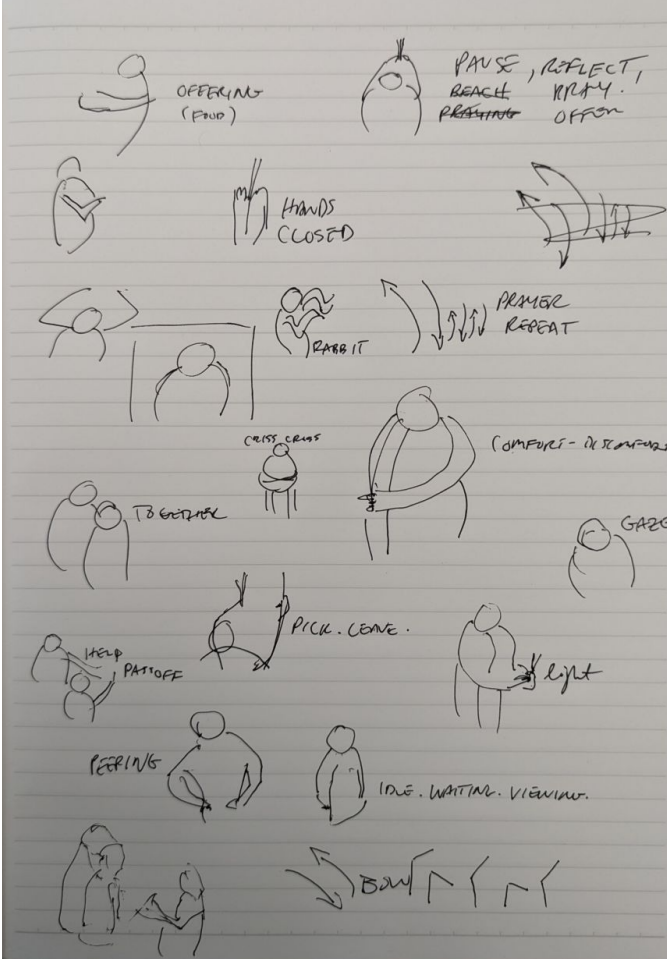 OFFERING
(FOOD)
PAUSE, REFLECT,
REACH PRAY.
PRAYING OFFER
HANDS
CLOSED
PRAYER
REPEAT
RABBIT
CRISS CROSS
COMFORT - DISCOMFOR
TOGETHER
GAZE
PICK. LEAVE.
HELP
PASSOFF
light
PEERING
IDLE. WAITING. VIEWING.
BOW